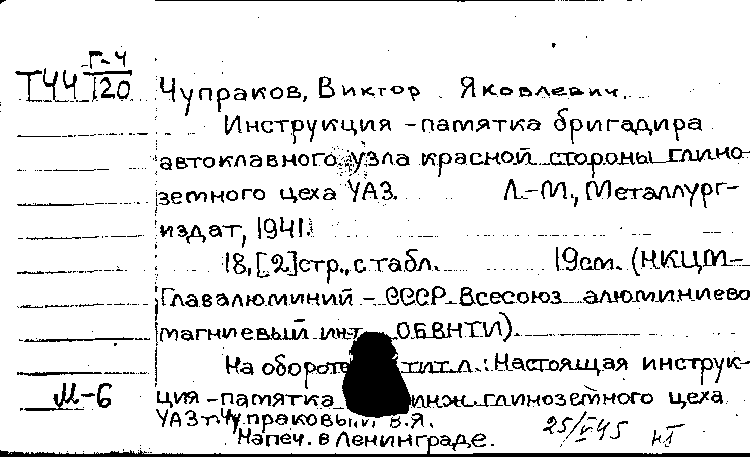 Г-4
Т44 120
Чупраков, Виктор Яковлевич.
Инструкция-памятка бригадира
автоклавного узла красной стороны глино-
земного цеха УАЗ. Л.-М., Металлург-
издат, 1941.
18,[2]стр., с табл. 19см. (НКЦМ-
Главалюминий - СССР. Всесоюз алюминиево
магниевый инт ОБВНТИ).
На обороте тит.л.: Настоящая инструк-
М-6 ция-памятка инж. глиноземного цеха
УАЗ т. Чупраковым В.Я.
Напеч. в Ленинграде. 25/V45